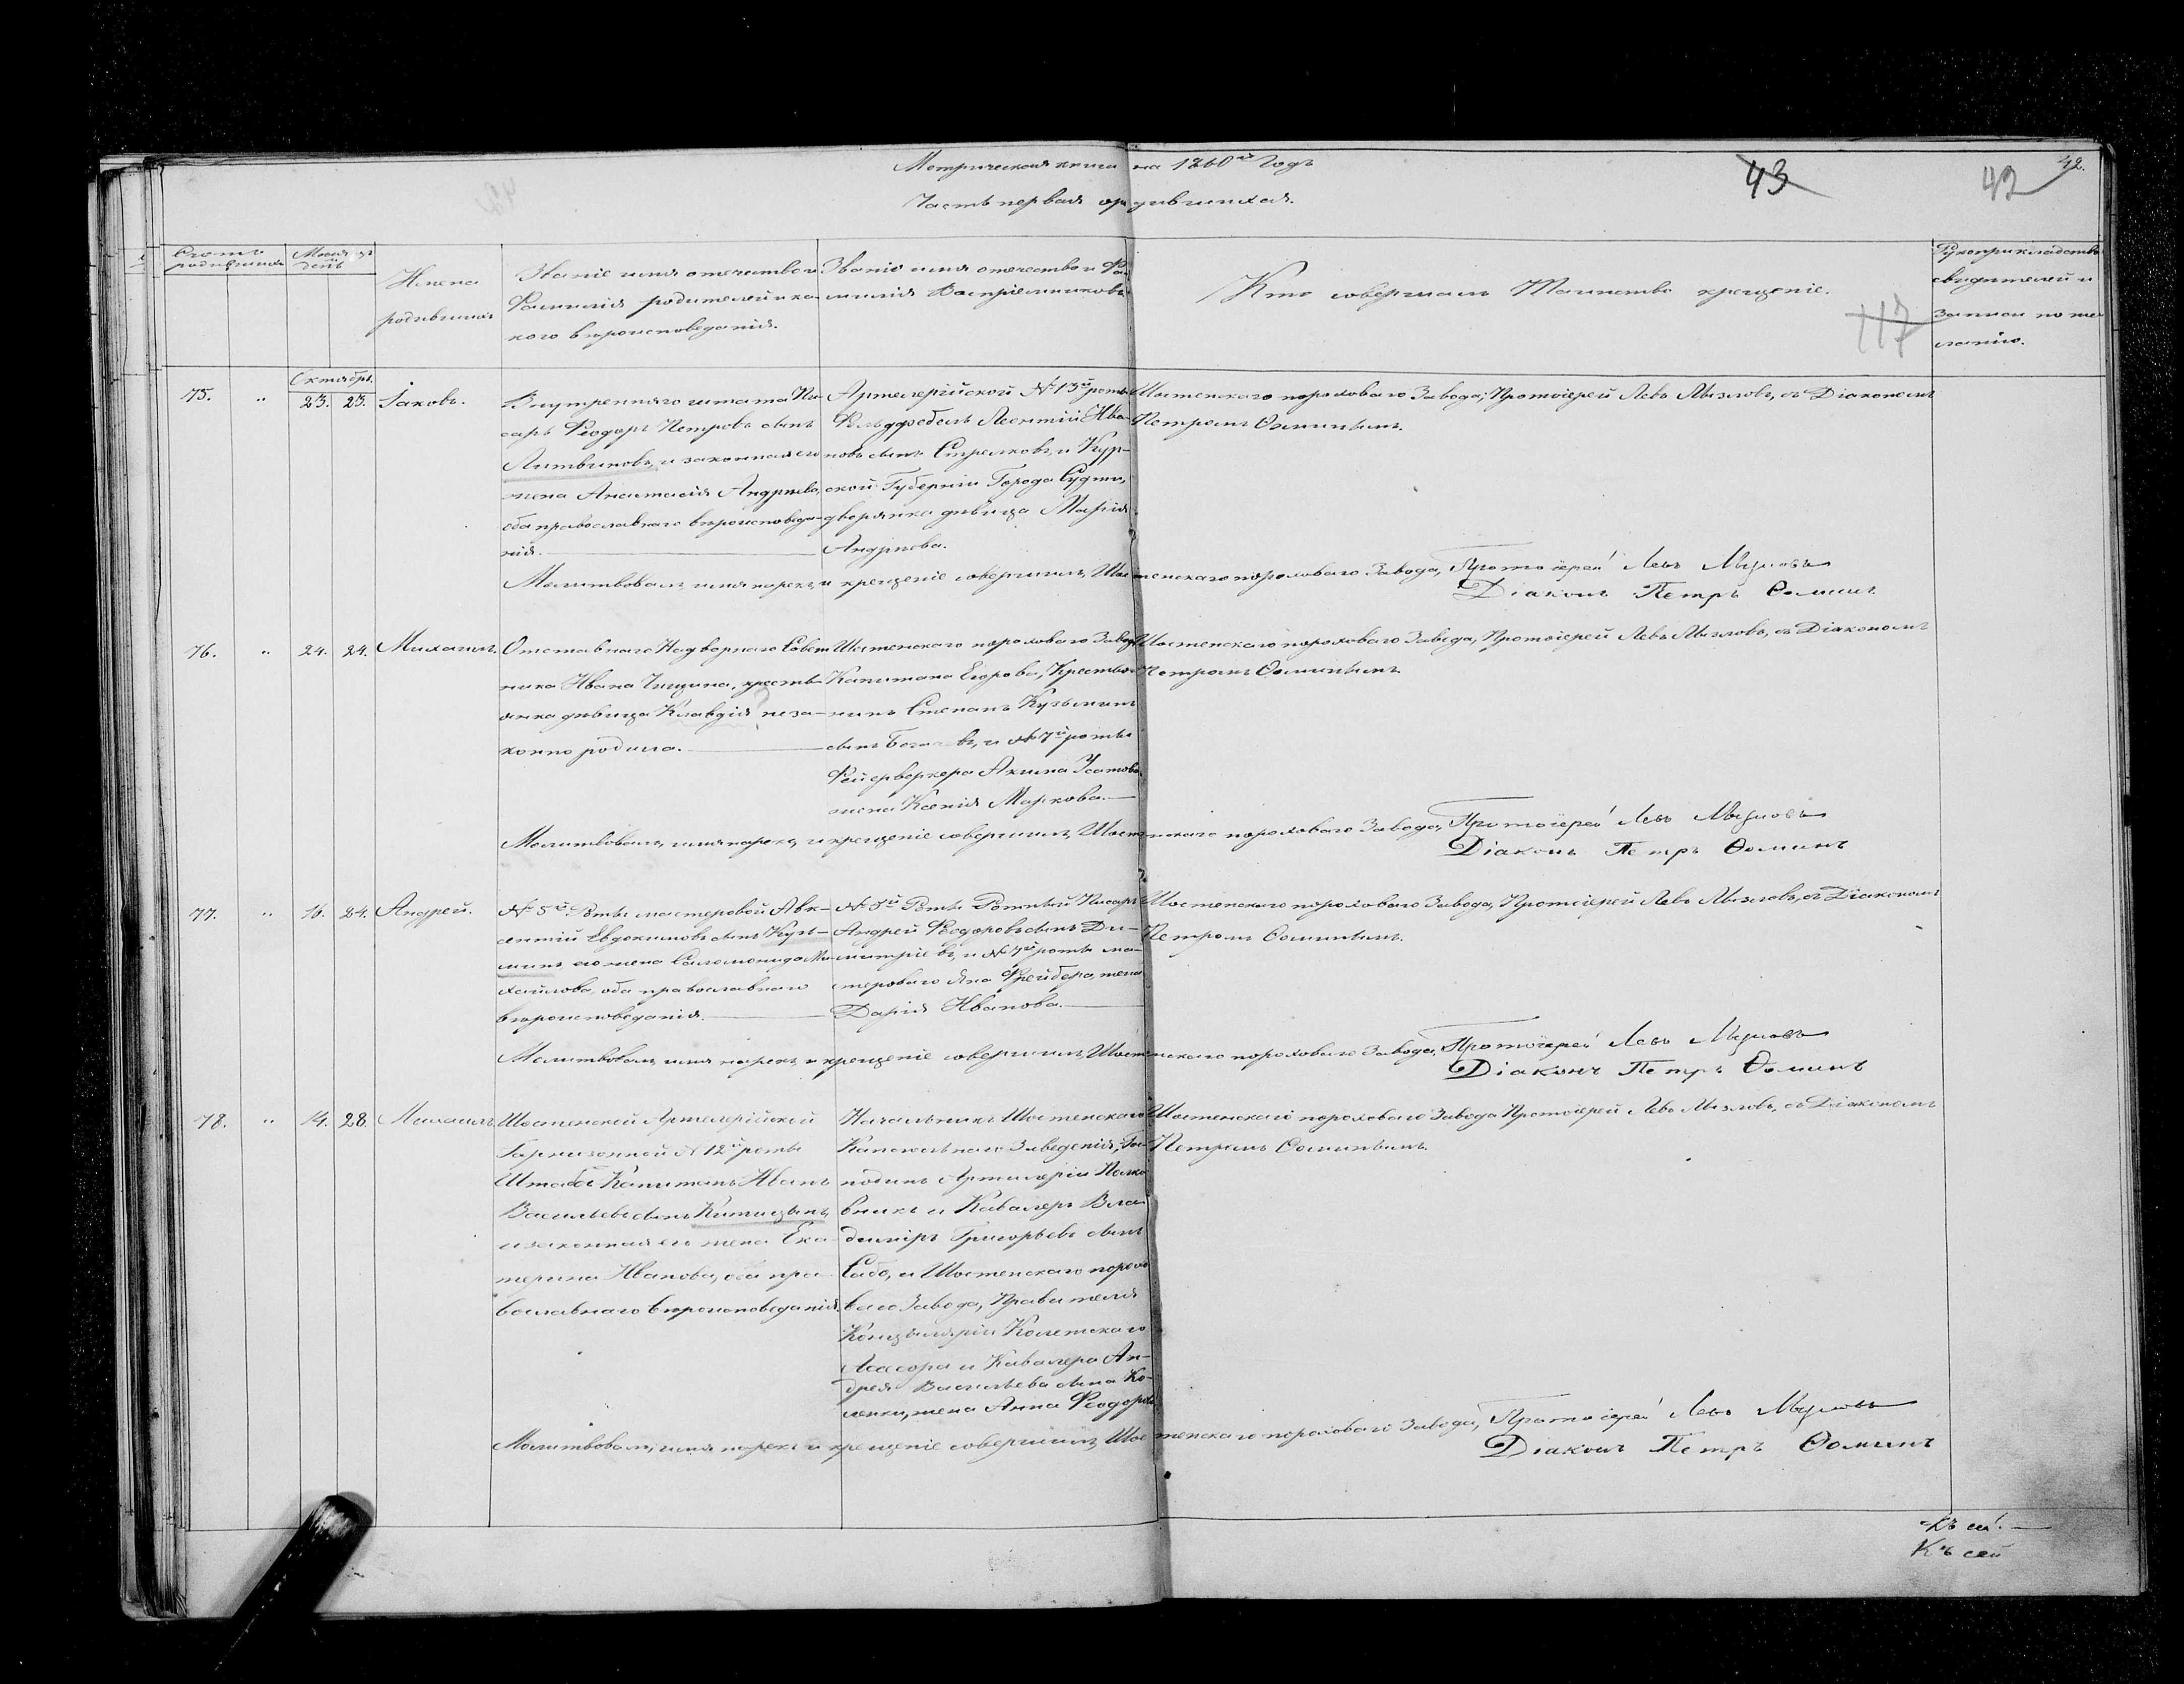 Метрическая книга на 1860й Годъ
Часть первая о родившихся.
43
42
42.
117
Счетъ родившихся
Месяцъ день
Имена родившихся
Званіе имя отечество и
Фамилія родителей и ка-
кого вѣроисповеданія.
Званіе имя отечество и Фа-
милія Воспріемниковъ
Кто совершалъ Таинство крещеніе.
Рукоприкладство
свидетелей и
записи по же
ланію.
Октябрь.
75. " 23. 23. Іаковъ.
Внутренняго штата Пи-
сарь Феодоръ Петровъ сынъ
Литвиновъ, и законная его
жена Анастасія Андреева,
оба православнаго вѣроисповеда-
нія.
Артелерійской №13й роты
Фельдфебель Леонтій Ива-
новъ сынъ Стрелковъ, и Кур-
ской Губерніи Города Суджи,
дворянка дѣвица Марія
Андреева.
Шостенскаго пороховаго Завода, Протоіерей Левъ Мызловъ, съ Діакономъ
Петромъ Ѳоминымъ.
Молитвовалъ, имя нарекъ, и крещеніе совершилъ, Шостенскаго пороховаго Завода, Протоіерей Левъ Мызловъ
Діаконъ Петръ Ѳоминъ
76. " 24. 24. Михаилъ.
Отставнаго Надворнаго Совет
ника Ивана Чищина, кресть-
янка дѣвица Клавдія неза-
конно родила.
Шостенскаго пороховаго Завода
Капитана Егорова, Крестья
нинъ Степанъ Кузьминъ
сынъ и №7й роты
Фейерверкера Акима Усатова
жена Ксенія Маркова.
Шостенскаго пороховаго Завода, Протоіерей Левъ Мызловъ, съ Діакономъ
Петромъ Ѳоминымъ.
Молитвовалъ, имя нарекъ, и крещеніе совершилъ, Шостенскаго пороховаго Завода, Протоіерей Левъ Мызловъ
Діаконъ Петръ Ѳоминъ
77. " 16. 24. Андрей.
№5й Роты мастеровой Авк-
сентій Евдокимовъ сынъ Кузь-
минъ, его жена Саломонида Ми-
хайлова, оба православнаго
вѣроисповеданія.
№5й Роты Ротный Писарь
Андрей Феодоровъ сынъ Ди-
митріевъ, и №7й роты ма-
стероваго Яна Фрейбера, жена
Дарія Иванова.
Шостенскаго пороховаго Завода, Протоіерей Левъ Мызловъ, съ Діакономъ
Петромъ Ѳоминымъ.
Молитвовалъ, имя нарекъ, и крещеніе совершилъ, Шостенскаго пороховаго Завода, Протоіерей Левъ Мызловъ
Діаконъ Петръ Ѳоминъ
78. " 14. 28. Михаилъ
Шостенской Артелерійской
Гарнизонной №12й роты
Штабсъ Капитанъ Иванъ
Васильевъ сынъ Китицынъ,
и законная его жена Ека
терина Иванова, оба пра-
вославнаго вѣроисповеданія.
Начальникъ Шостенскаго
Капсюльнаго Заведенія, Гос-
подинъ Артилеріи Полко
вникъ и Кавалеръ Вла
димиръ Григорьевъ сынъ
Сабо, и Шостенскаго порохо
ваго Завода, Правителя
Канцыляріи Колетскаго
Асесора и Кавалера Ан-
дрея Васильева сына Ко-
ленки, жена Анна Феодорова
Шостенскаго пороховаго Завода Протоіерей Левъ Мызловъ, съ Діакономъ
Петромъ Ѳоминымъ.
Молитвовалъ, имя нарекъ и крещеніе совершилъ, Шостенскаго пороховаго Завода, Протоіерей Левъ Мызловъ
Діаконъ Петръ Ѳоминъ
Къ сей
Къ сей